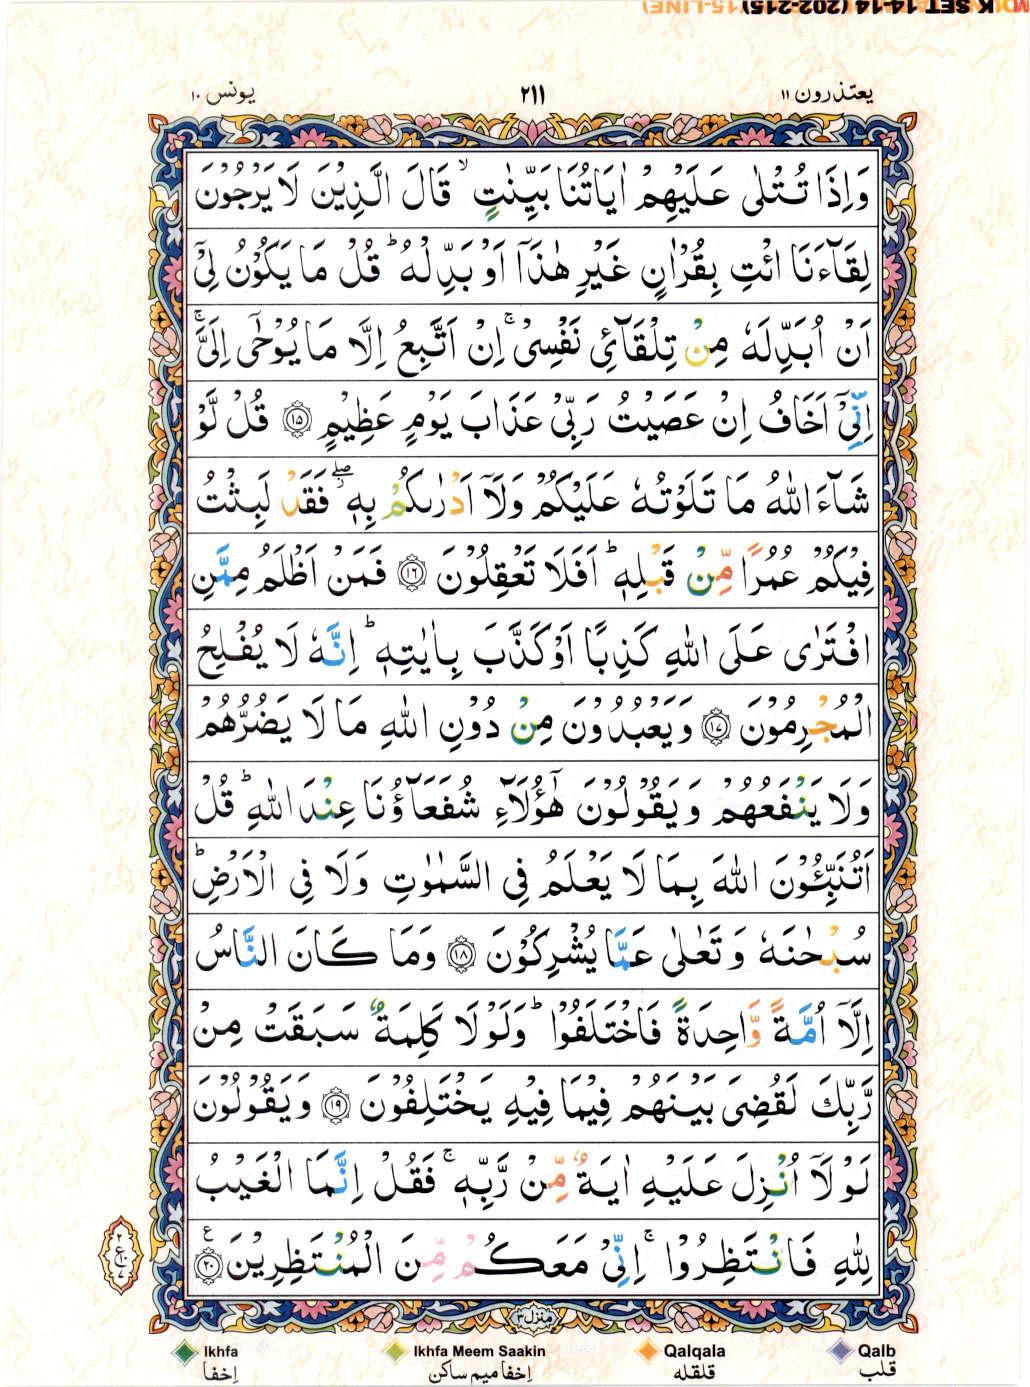 K SET 14-14 (202-215) (15-LINE)
يعتذرون ١١
٢١١
يونس ١٠
وَاِذَا تُتْلٰى عَلَيْهِمْ اٰيَاتُنَا بَيِّنٰتٍ ۙ قَالَ الَّذِيْنَ لَا يَرْجُوْنَ
لِقَآءَنَا ائْتِ بِقُرْاٰنٍ غَيْرِ هٰذَاۤ اَوْ بَدِّلْهُ ؕ قُلْ مَا يَكُوْنُ لِيْۤ
اَنْ اُبَدِّلَهٗ مِنْ تِلْقَآئِ نَفْسِيْ ۚ اِنْ اَتَّبِعُ اِلَّا مَا يُوْحٰۤى اِلَيَّ ۚ
اِنِّيْۤ اَخَافُ اِنْ عَصَيْتُ رَبِّيْ عَذَابَ يَوْمٍ عَظِيْمٍ ۝١٥ قُلْ لَّوْ
شَآءَ اللّٰهُ مَا تَلَوْتُهٗ عَلَيْكُمْ وَلَاۤ اَدْرٰىكُمْ بِهٖ ۖ فَقَدْ لَبِثْتُ
فِيْكُمْ عُمُرًا مِّنْ قَبْلِهٖ ؕ اَفَلَا تَعْقِلُوْنَ ۝١٦ فَمَنْ اَظْلَمُ مِمَّنِ
افْتَرٰى عَلَى اللّٰهِ كَذِبًا اَوْ كَذَّبَ بِاٰيٰتِهٖ ؕ اِنَّهٗ لَا يُفْلِحُ
الْمُجْرِمُوْنَ ۝١٧ وَيَعْبُدُوْنَ مِنْ دُوْنِ اللّٰهِ مَا لَا يَضُرُّهُمْ
وَلَا يَنْفَعُهُمْ وَيَقُوْلُوْنَ هٰۤؤُلَآءِ شُفَعَآؤُنَا عِنْدَ اللّٰهِ ؕ قُلْ
اَتُنَبِّئُوْنَ اللّٰهَ بِمَا لَا يَعْلَمُ فِي السَّمٰوٰتِ وَلَا فِي الْاَرْضِ ؕ
سُبْحٰنَهٗ وَتَعٰلٰى عَمَّا يُشْرِكُوْنَ ۝١٨ وَمَا كَانَ النَّاسُ
اِلَّاۤ اُمَّةً وَّاحِدَةً فَاخْتَلَفُوْا ؕ وَلَوْلَا كَلِمَةٌ سَبَقَتْ مِنْ
رَّبِّكَ لَقُضِيَ بَيْنَهُمْ فِيْمَا فِيْهِ يَخْتَلِفُوْنَ ۝١٩ وَيَقُوْلُوْنَ
لَوْلَاۤ اُنْزِلَ عَلَيْهِ اٰيَةٌ مِّنْ رَّبِّهٖ ۚ فَقُلْ اِنَّمَا الْغَيْبُ
لِلّٰهِ فَانْتَظِرُوْا ۚ اِنِّيْ مَعَكُمْ مِّنَ الْمُنْتَظِرِيْنَ ۝٢٠ ع
٢
ع ١٠
٧
منزل ٣
Ikhfa Ikhfa Meem Saakin Qalqala Qalb
إخفا إخفا ميم ساكن قلقله قلب